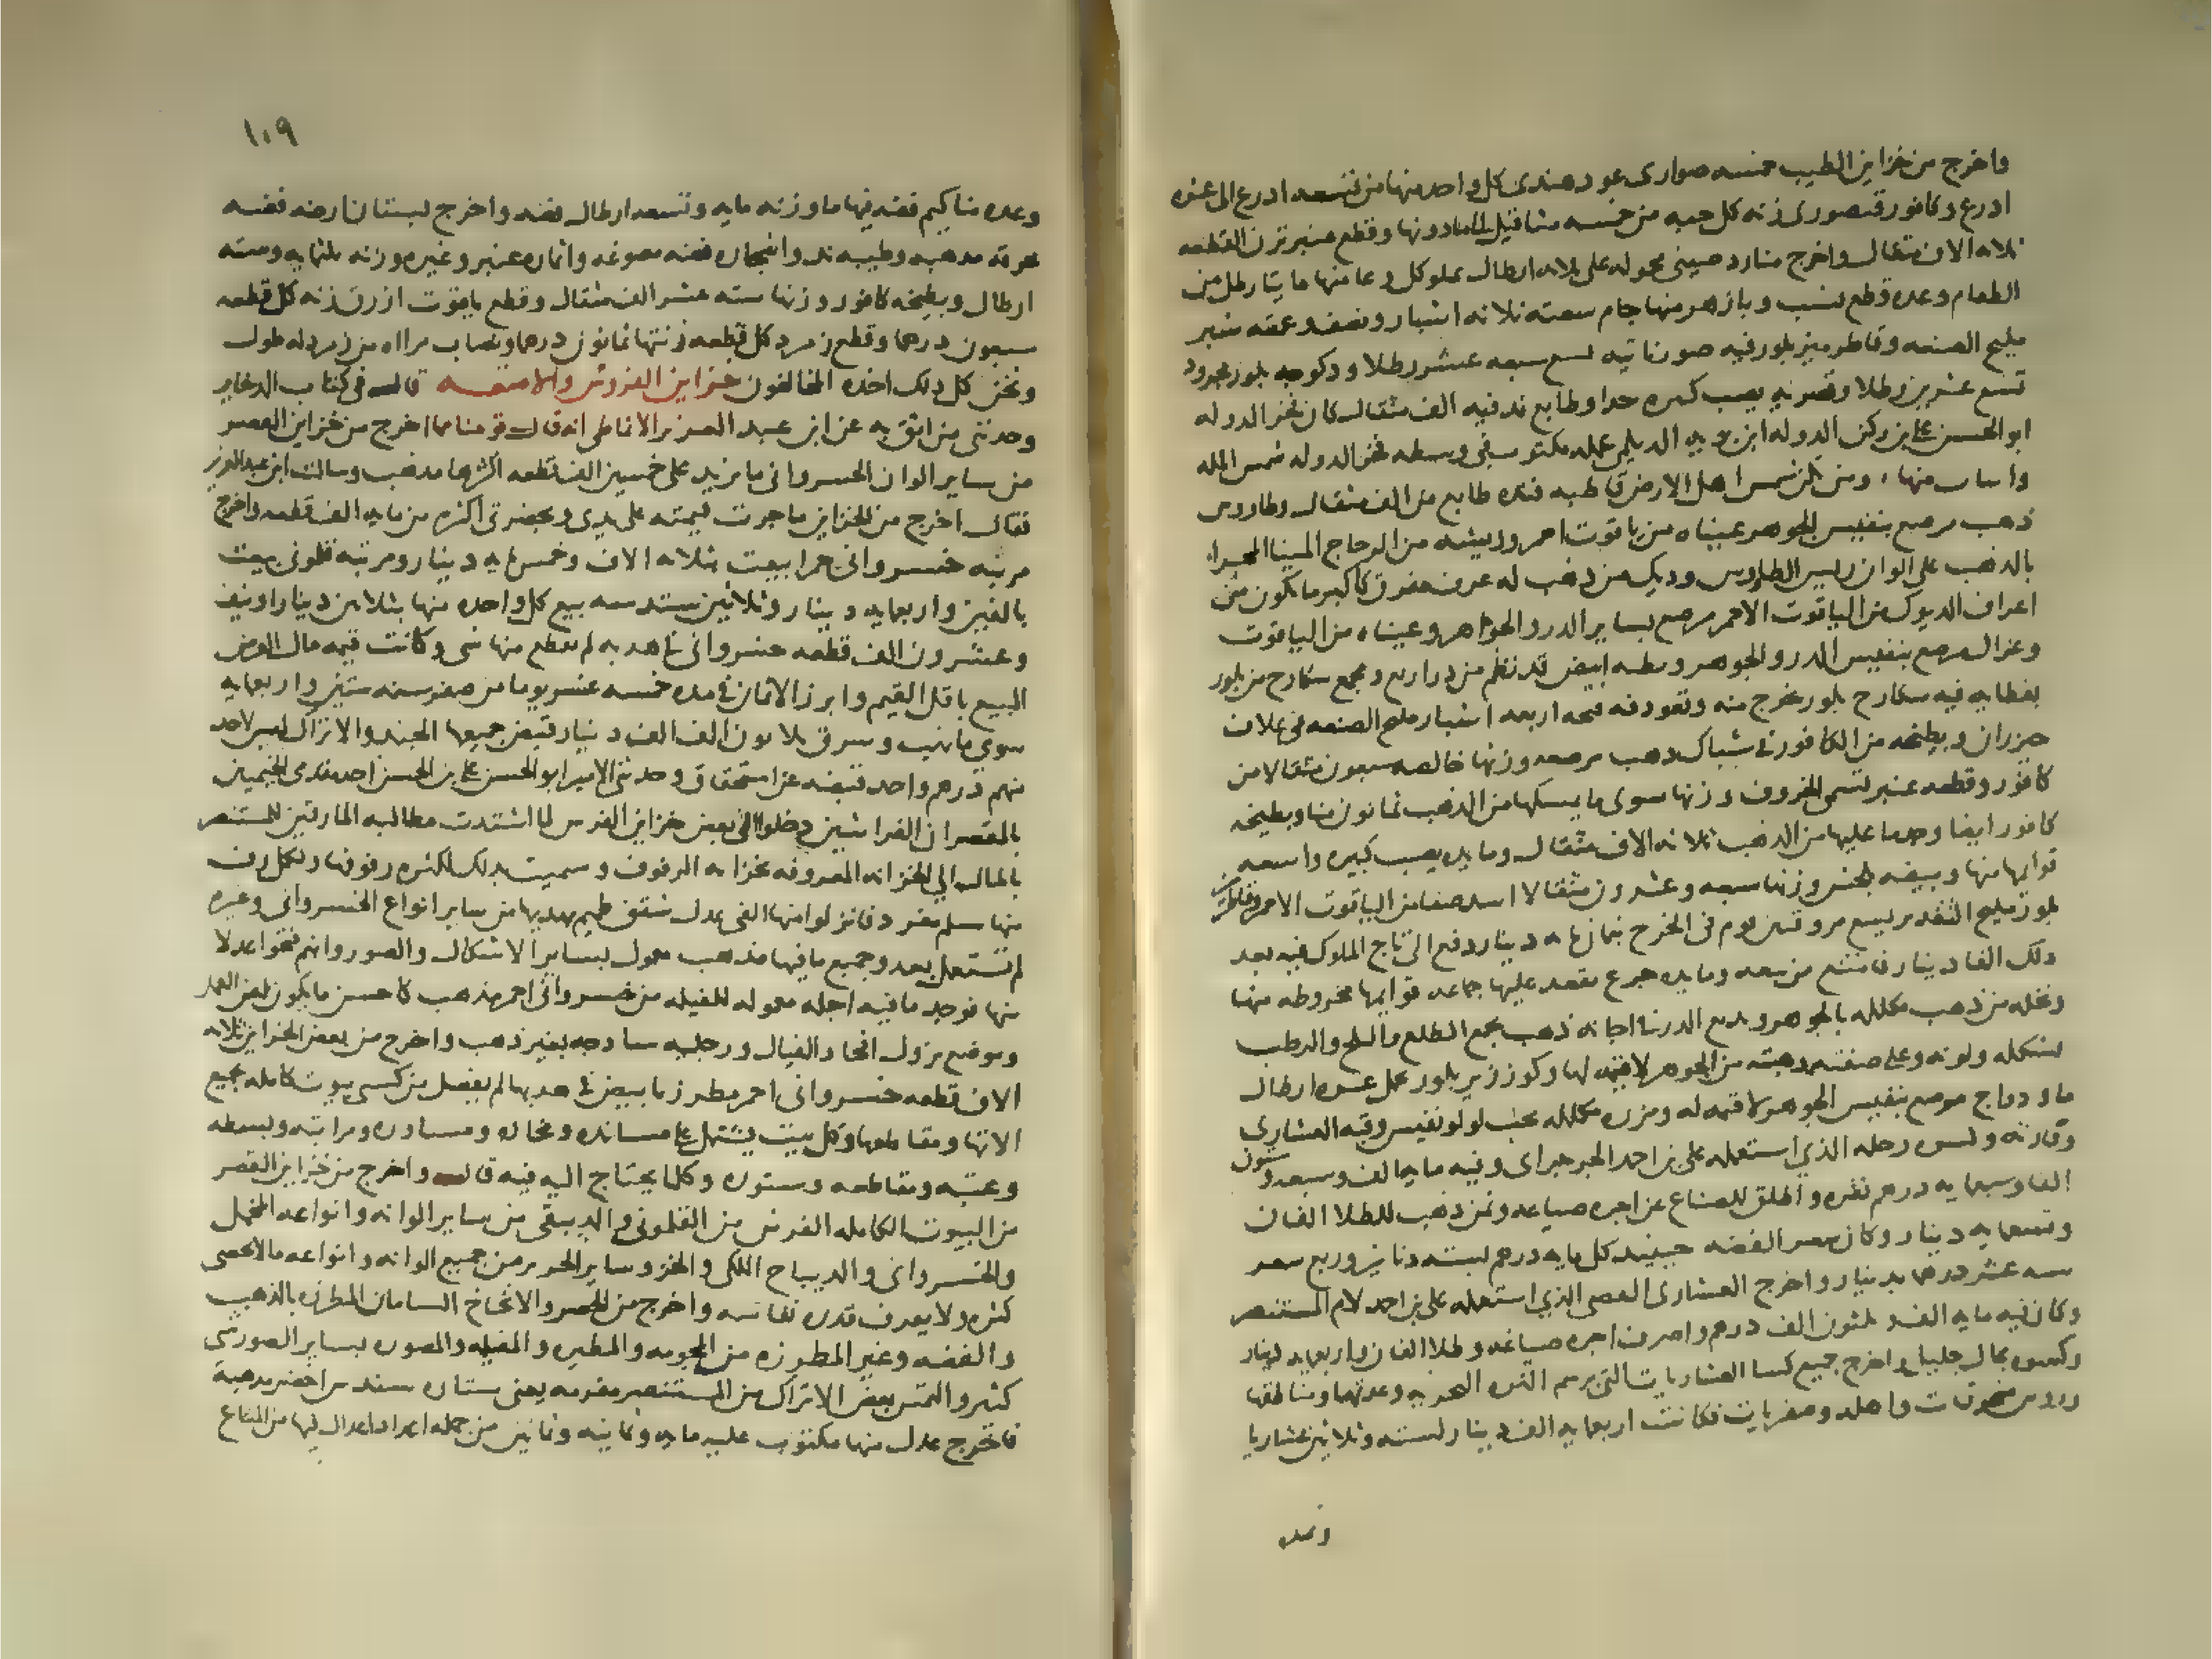 واخرج من خزاين الطيب خمسه صوارى عود هندى كل واحد منها من تسعه ادرع الى عشره
ادرع وكافور قيصورى زنه كل حبه من خمسه مثاقيل الى ما دونها وقطع عنبر تزن القطعه
ثلاثه الاف مثقال واخرج متارد صينى محموله على ثلاثه ارطال مملو كل وعا منها مايتا رطل من
الطعام وعده قطع يشب وبازهر منها جام سعته ثلاثه اشبار ونصف وعمقه شبر
مليح الصنعه وقاطرميز بلور فيه صور ناتيه يسع سبعه عشر رطلا و بلور مجرود
تسع عشرين رطلا وقصريه يصب كبيره جدا وطابع ند فيه الف مثقال كان فخر الدوله
ابو الحسن على بن ركن الدوله ابن بويه الديلمى عمله مكتوب فى وسطه فخر الدوله شمس المله
وابيات منها ومن يكن شمس اهل الارض قاطبه فنده طابع من الف مثقال وطاووس
ذهب مرصع بنفيس الجوهر عيناه من ياقوت احمر وريشه من الزجاج المينا المجراه
بالذهب على الوان ريش الطاووس وديك من ذهب له عرف مفروق كاكبر ما يكون من
اعراف الديوك من الياقوت الاحمر مرصع بساير الدرر والجواهر وعيناه من الياقوت
وغزال مرصع بنفيس الدر والجوهر وبطنه ابيض قد نظم من در رايع ومجمع سكارج من بلور
بغطايه فيه سكارج بلور تخرج منه وتعود فيه فتحه اربعه اشبار مليح الصنعه فى غلاف
خيزران وبطيخه من الكافور فى شباك ذهب مرصعه وزنها خالصه سبعون مثقالا من
كافور وقطعه عنبر تسمى الخروف وزنها سوى ما يمسكها من الذهب ثمانون منا وبطيخه
كافور ايضا وجد ما عليها من الذهب ثلاثه الاف مثقال ومايده يصب كبيره واسعه
قوايمها منها وبيضه بلخش وزنها سبعه وعشرون مثقالا اشد صفا من الياقوت الاحمر وقاطرميز
بلور مليح التقدير يسع مروقتين قوم فى الخرج بثمان مايه دينار ودفع الى تاج الملوك فيه بعد
ذلك الفا دينار فامتنع من بيعه ومايده جزع يقعد عليها جماعه قوايمها مخروطه منها
ونخله من ذهب مكلله بالجوهر وبديع الدر فى اجانه ذهب بجمع الطلع والبلح والرطب
بشكله ولونه وعلى صفته وهيئته من الجوهر لا قيمه لها وكوز زير بلور يحمل عشره ارطال
ما ودواج مرصع بنفيس الجوهر لا قيمه له ومزره مكلله بحب لولو نفيس وقبه العشارى
وقاربه وكسوه رحله الذي استعمله على بن احمد الجرجراى وفيه مايه الف وسبعه وستون
الفا وسبعمايه درهم نقره واطلق للصناع عن اجره صياغه وثمن ذهب للطلا الفان
وتسعمايه دينار وكان سعر الفضه حينيذ كل مايه درهم بسته دنانير وربع سعر
سته عشر درهما بدينار واخرج العشارى الفضى الذي استعمله على بن احمد لام المستنصر
وكان فيه مايه الف وثلثون الف درهم واصرف اجره صياغه وطلا الفان واربعمايه دينار
وكسوه بمال جليل واخرج جميع كسا العشاريات التى برسم النزه البحريه وعدتها ومناطقها
وروس منجوقات واهله وصفريات فكانت اربعمايه الف دينار لسته وثلاثين عشاريا
وعده
١٠٩
وعده مناكيم فضه فيها ما وزنه مايه وتسعه ارطال فضه واخرج بستان ارضه فضه
مخرقه مذهبه وطينه ند واشجاره فضه مصوغه واثماره عنبر وغيره وزنه ثلثمايه وسته
ارطال وبطيخه كافور وزنها سته عشر الف مثقال وقطع ياقوت ازرق زنه كل قطعه
سبعون درهما وقطع زمرد كل قطعه زنتها ثمانون درهما ونصاب مراه من زمرد له طول
وثخن كل ذلك اخذه المخالفون خزاين الفرش والامتعه قال فى كتاب الدخاير
وحدثنى من اثق به عن ابن عبد العزيز الانماطى انه قال قومنا مما اخرج من خزاين القصر
من ساير الوان الخسروانى ما يزيد على خمسين الف قطعه اكثرها مذهب وسالت ابن عبد العزيز
فقال اخرج من الخزاين ما جرت قيمته على يدى وبحضرتى اكثر من مايه الف قطعه واخرج
مرتبه خسروانى حمرا بيعت بثلاثه الاف وخمسمايه دينار ومرتبه قلمونى بيعت
بالفين واربعمايه دينار وثلاثين سندسيه بيع كل واحده منها بثلاثين دينارا ونيف
وعشرون الف قطعه خسروانى فى هدبه لم يقطع منها شى وكانت قيمه مال العرض
المبيع باقل القيم وابرز الاثمان فى مده خمسه عشر يوما من صفر سنه ستين واربعمايه
سوى ما نهب وسرق ثلاثون الف الف دينار قبض جميعها الجند والاتراك ليس لاحد
منهم درهم واحد قبضه عن استحقاق وحدثنى الامير ابو الحسن على بن الحسن احد مقدمى الخيميين
بالقصر ان الفراشين دخلوا الى بعض خزاين الفرش لما اشتدت مطالبه المارقين للمستنصر
بالمال الى الخزانه المعروفه بخزانه الرفوف وسميت بذلك لكثره رفوفها ولكل رف
منها سلم مفرد فانزلوا منها الفى عدل شقق طيم بهدبها من ساير انواع الخسروانى وغيره
لم تستعمل بعد وجميع ما فيها مذهب معمول بساير الاشكال والصور وانهم فتحوا عدلا
منها فوجد ما فيه اجله معموله للفيله من خسروانى احمر مذهب كاحسن ما يكون من العمل
وموضع نزول افخاذ الفيال ورجليه ساذجه بغير ذهب واخرج من بعض الخزاين ثلاثه
الاف قطعه خسروانى احمر مطرز بابيض فى هدبها لم يفصل من كسى بيوت كامله بجميع
الاتها ومقاطعها وكل بيت يشتمل على مسانده ومخاده ومساوره ومراتبه وبسطه
وعتبه ومقاطعه وستوره وكلما يحتاج اليه فيه قال واخرج من خزاين القصر
من البيوت الكامله الفرش من القلمونى والدبيقى من ساير الوانه وانواعه المخمل
والخسروانى والديباج الملكى والخز وساير الحرير من جميع الوانه وانواعه ما لا يحصى
كثره ولا يعرف قدره نفاسه واخرج من الحصر والانخاخ السامان المطرزه بالذهب
والفضه وغير المطرزه من المخومه والمطيره والمفيله والمصوره بساير الصور شى
كثير والتمس بعض الاتراك من المستنصر مقرمه يعنى ستاره سندس اخضر مذهبة
فاخرج عدل منها مكتوب عليه مايه وثمانيه وثمانين من جمله اعداد اعدال فيها من المتاع